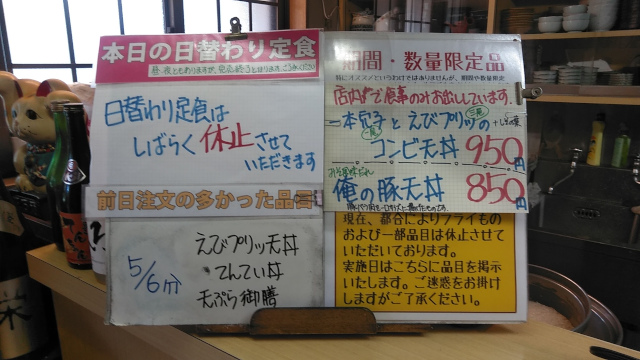 本日の日替わり定食
日替わり定食は
しばらく休止させて
いただきます
前日注文の多かった品
5/6分
えびプリッ天丼
てんてい丼
天ぷら御膳
期間・数量限定品
特にオススメというわけではありませんが、期間や数量限定
店内にて食事のみお出ししています。
一本穴子とえびプリッの
コンビ天丼 950円
俺の豚天丼 850円
現在、都合によりフライもの
および一部品目は休止させて
いただいております。
実施日はこちらに品目を掲示
いたします。ご迷惑をお掛け
しますがご了承ください。